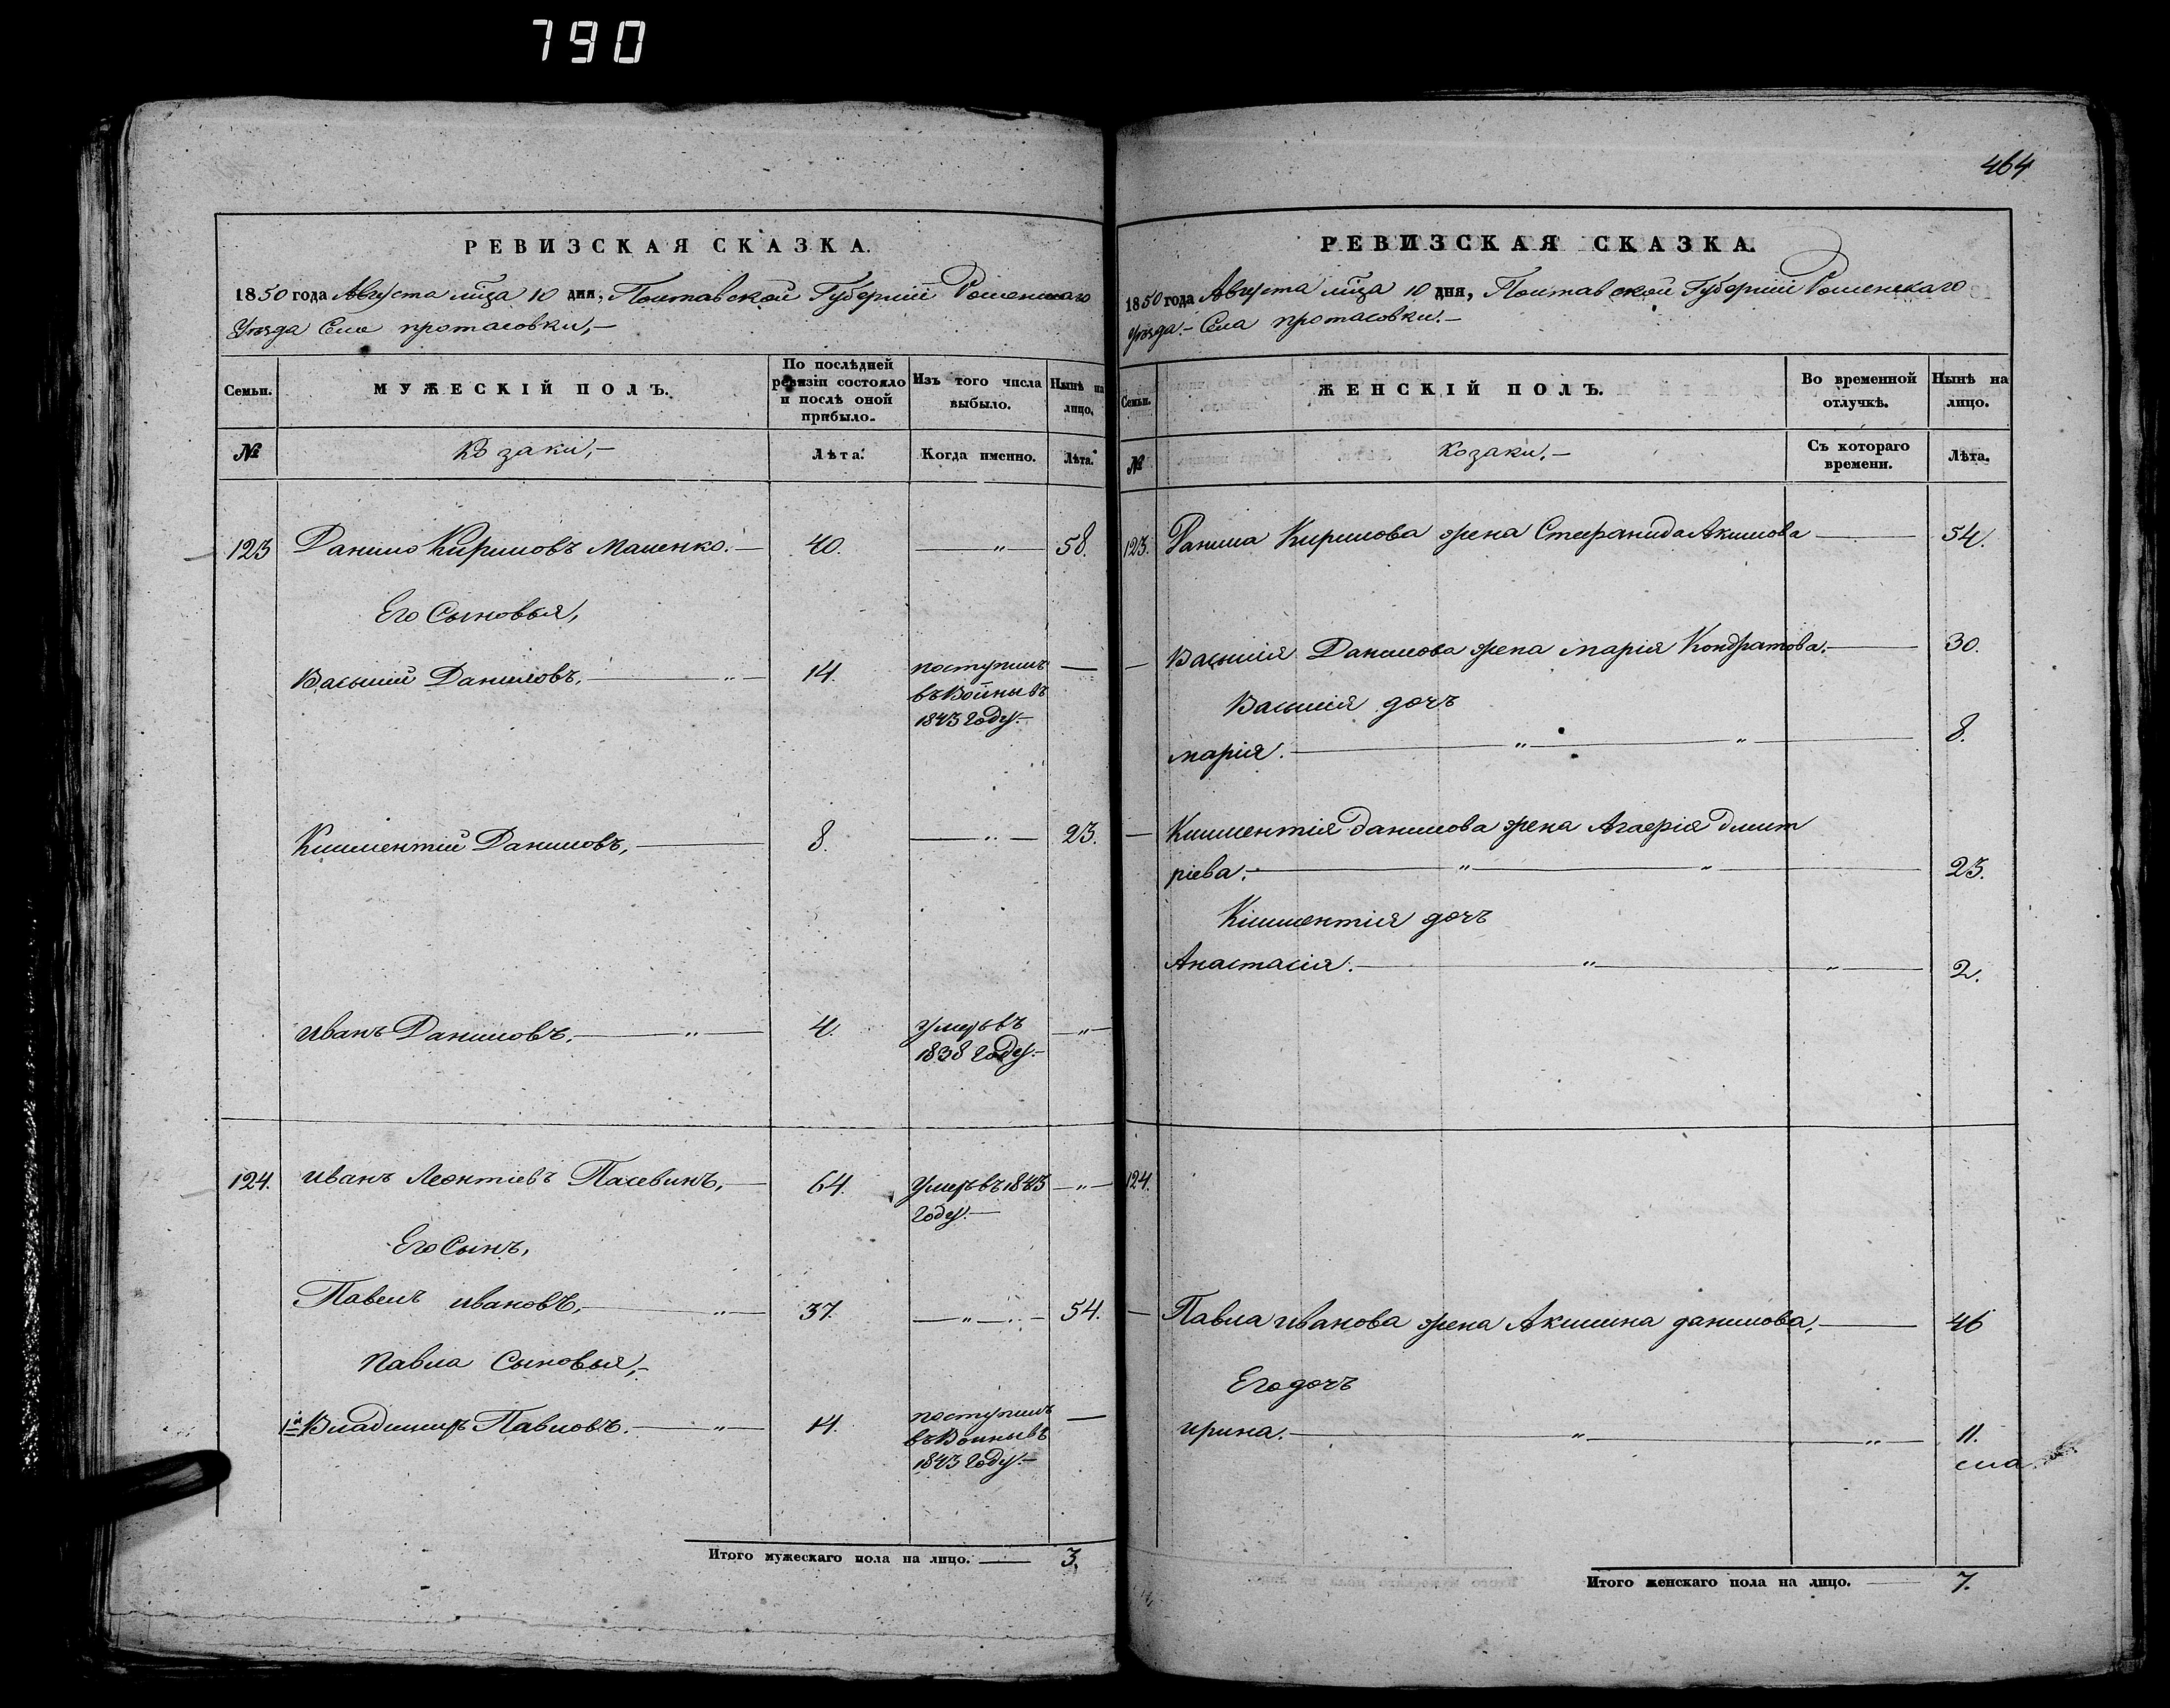 790
РЕВИЗСКАЯ СКАЗКА.
1850 года Августа мца 10 дня, Полтавской Губерніи Роменскаго
Уѣзда Села протасовки,—
Семьи.
МУЖЕСКІЙ ПОЛЪ.
По послѣдней ревизіи состояло и послѣ оной прибыло.
Изъ того числа выбыло.
Нынѣ на лицо.
№
Козаки,—
Лѣта.
Когда именно.
Лѣта.
123 Данило Кириловъ Маценко.— 40. —"— 58.
Его Сыновья,
Василий Даниловъ. —"— 14. поступилъ —
въ Войны въ
1843 Году.—
Климентий Даниловъ, — 8. —"— 23.
иванъ Даниловъ. —"— 4. Умеръ въ —"—
1838 Году.—
124. иванъ Леонтіевъ Пасевинъ, — 64. Умеръ въ 1843 —"—
Году.—
Его Сынъ,
Павелъ ивановъ, —"— 37. —"— 54.
Павла Сыновья,—
1й Владимиръ Павловъ. —"— 14. поступилъ —
въ Войны въ
1843 Году.—
Итого мужескаго пола на лицо. — 3.
464
РЕВИЗСКАЯ СКАЗКА.
1850 года Августа мца 10 дня, Полтавской Губерніи Роменскаго
Уѣзда.— Села протасовки.—
Семьи.
ЖЕНСКІЙ ПОЛЪ.
Во временной отлучкѣ.
Нынѣ на лицо.
№
Козаки.—
Съ котораго времени.
Лѣта.
123. Данила Кирилова жена Стефанида Акимова — 54.
— Василия Данилова жена марія Кондратова. — 30.
Василия дочъ
марія. —"—"— 8.
— Климентія данилова жена Агафія дмит
ріева. —"—"— 23.
Климентія дочъ
Анастасія. —"—"— 2.
124.
— Павла иванова жена Акилина данилова, — 46
Его дочъ
ирина. —"—"— 11.
Итого женскаго пола на лицо. — 7.